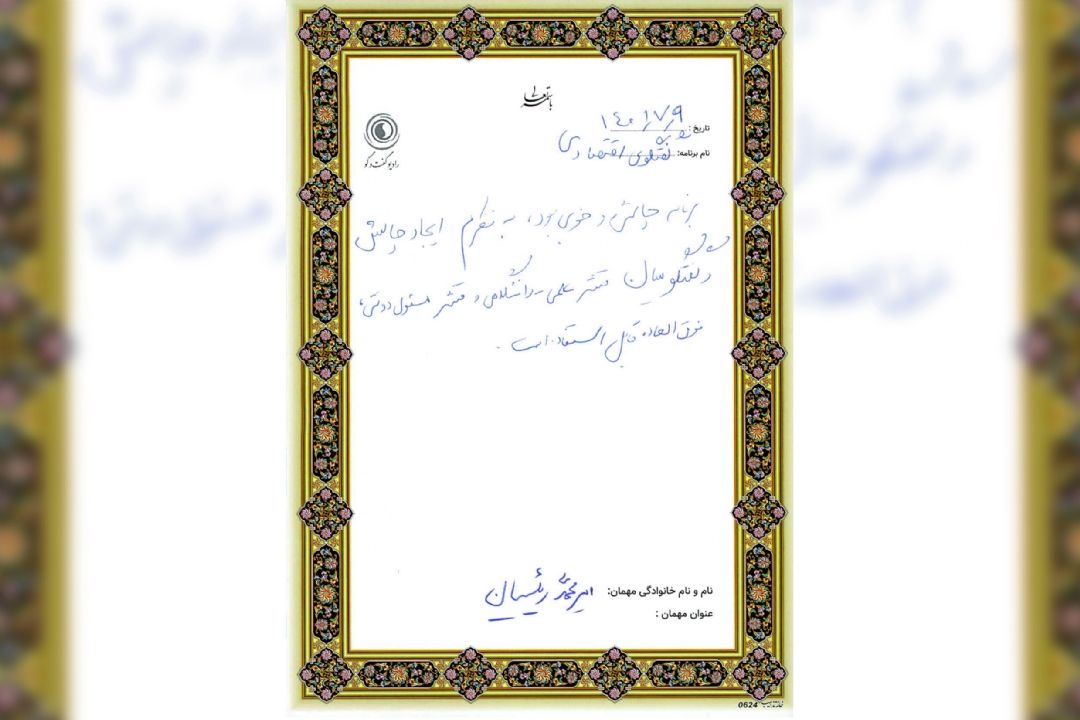 باسمه تعالی
رادیو گفت و گو
تاریخ: ۱۴۰۱/۷/۹
نام برنامه: گفتگوی اقتصادی
برنامه چالشی و خوبی بود، به نظرم ایجاد چالش
و گفتگو میان قشر علمی-دانشگاهی و قشر مسئول دولتی،
فوق العاده قابل استفاده است.
نام و نام خانوادگی مهمان: امیرمحمد رئیسیان
عنوان مهمان :
0624